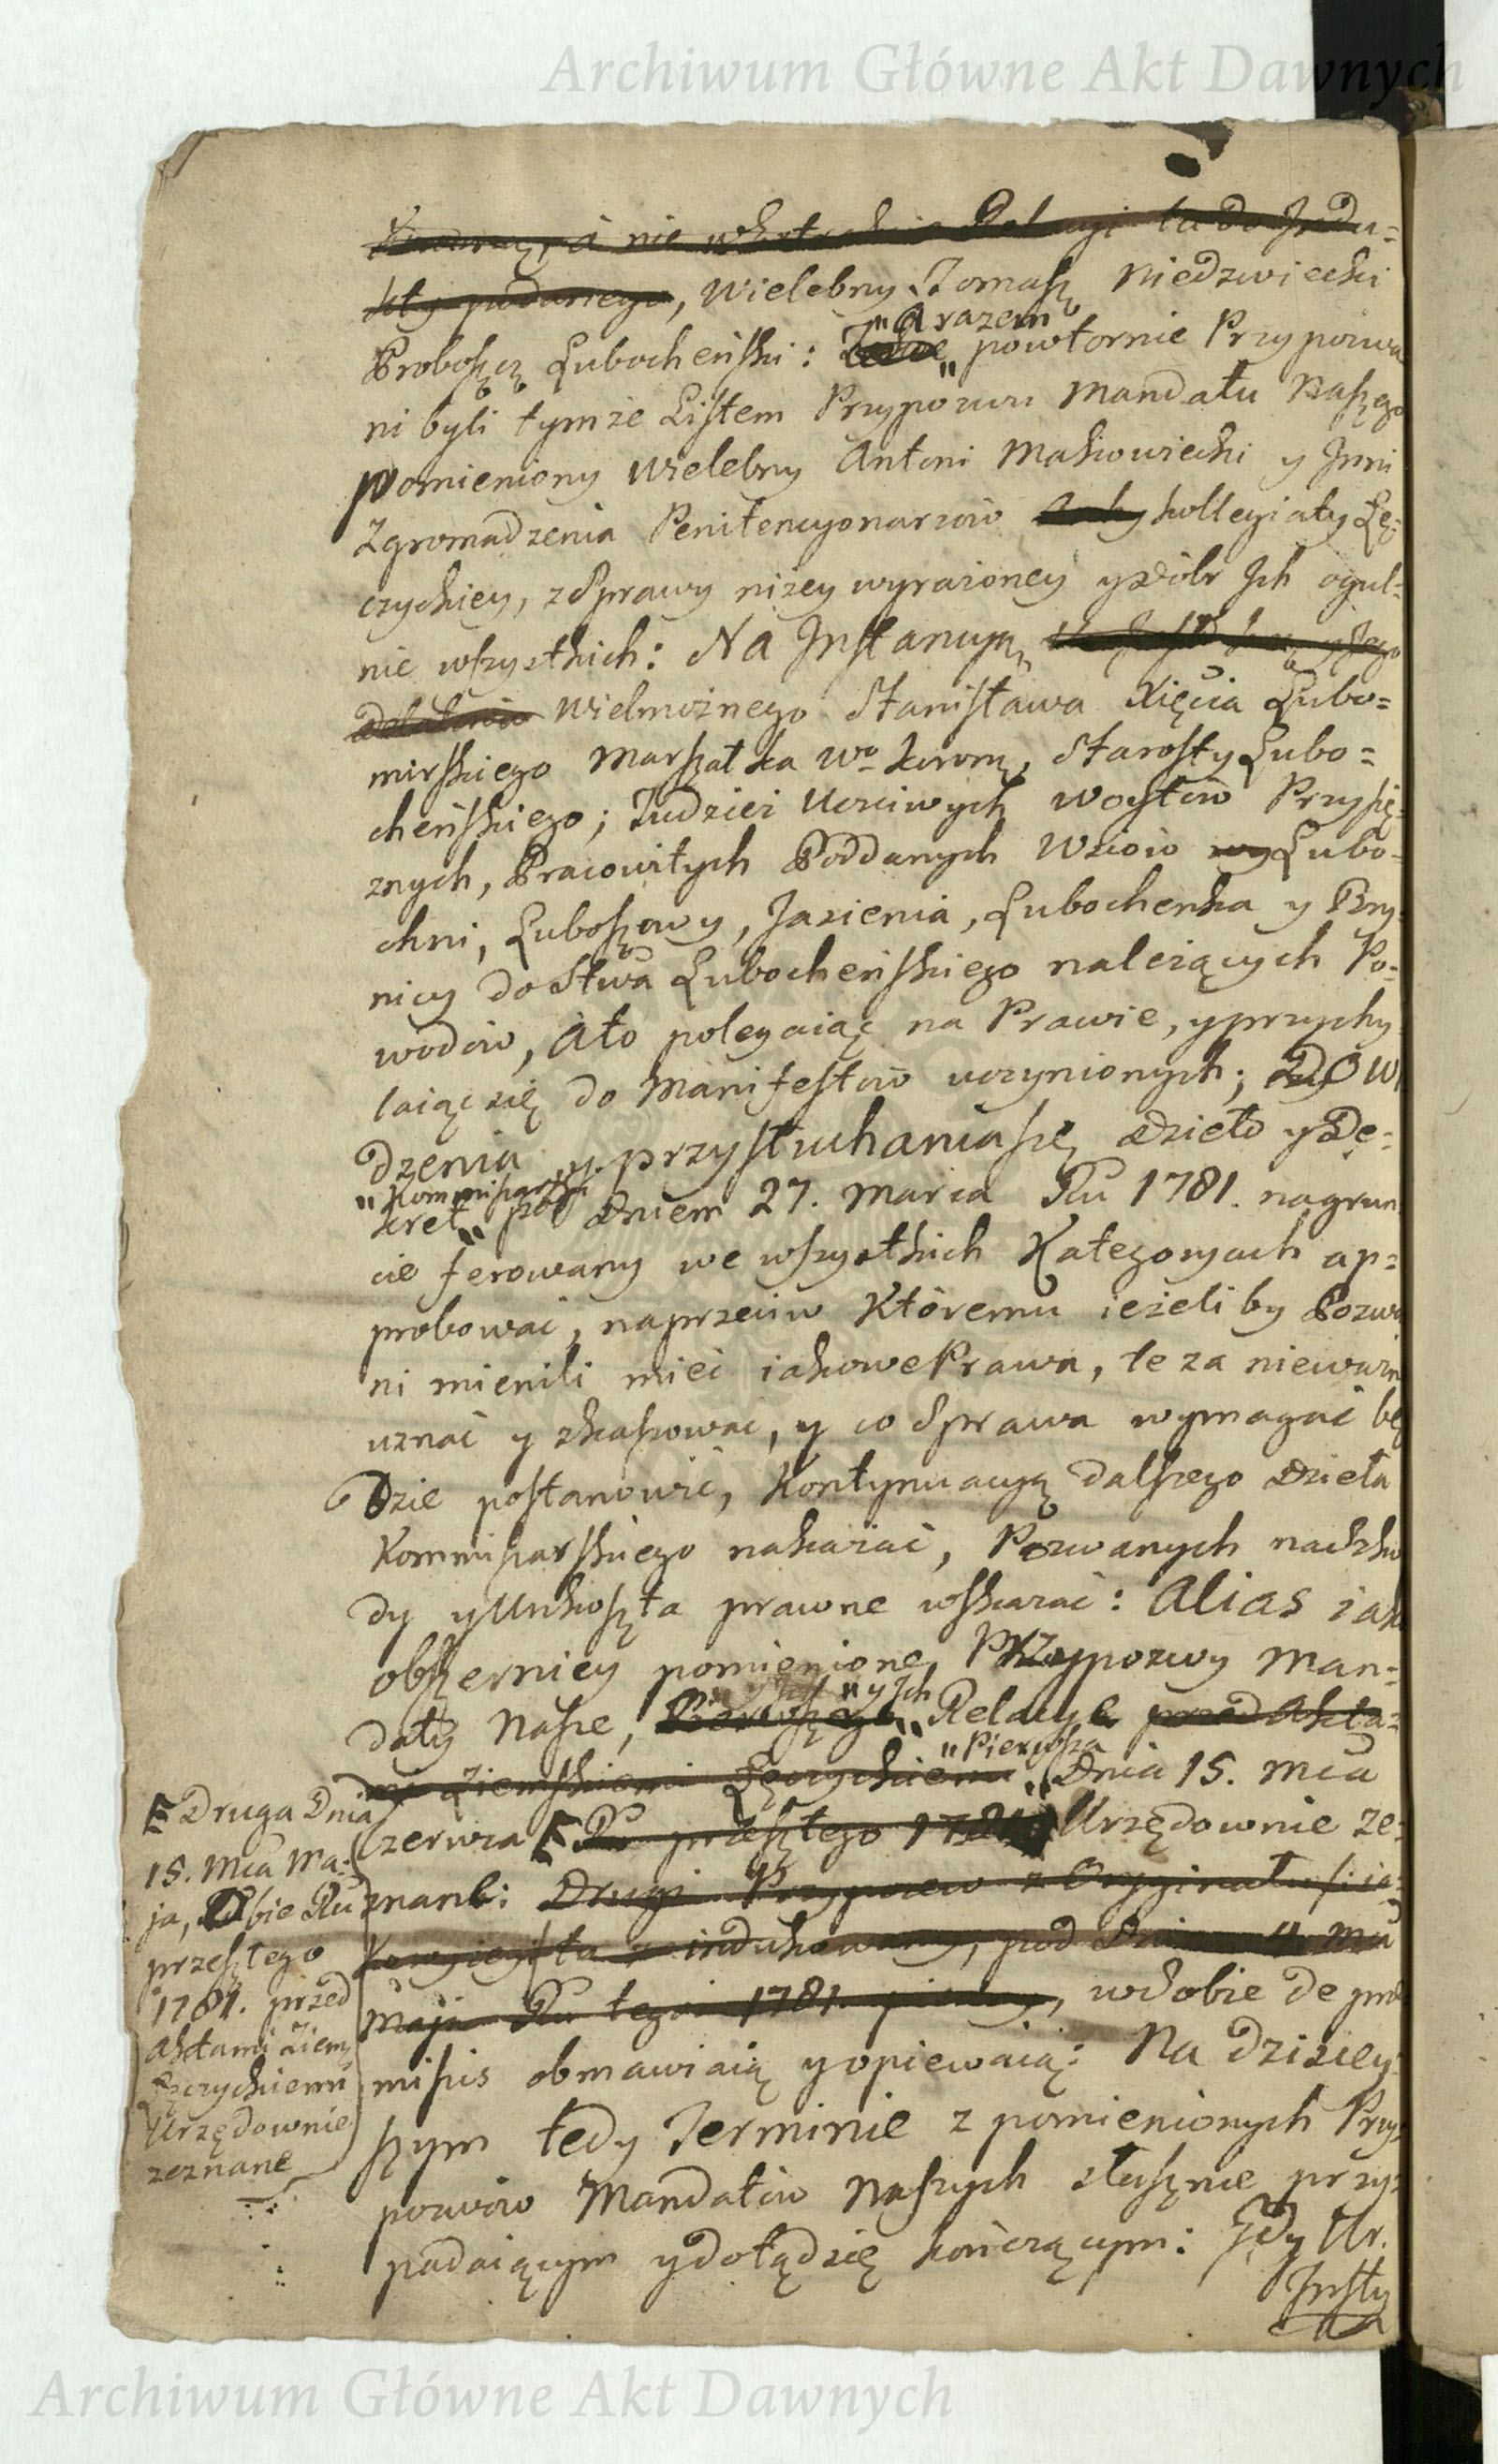 Archiwum Główne Akt Dawnych
à nie Relacyi ta do Indu=
kty podanego, Wielebny Tomasz Niedzwiecki
"Arazem
Proboszcz Lubocheński: powtornie Przypozwa
ni byli tymże Listem Przypozwu Mandatu Naszego
pomieniony Wielebny Antoni Makowiecki y Inni
Zgromadzenia Penitencyonarzow kollegiaty Łę=
czyckiey, z Sprawy niżey wyrażoney y Dóbr Ich ogul=
nie wszystkich: Na Instancyą,
Wielmożnego Stanisława Xięcia Lubo=
mirskiego Marszałka Wo Koronn, Starosty Lubo=
cheńskiego; Tudzież Uczciwych Woytow Przysię=
znych, Pracowitych Poddanych Wsiow wy Lubo=
chni, Luboszewy, Jasienia, Lubochenka y Bry=
nicy do Stwa Lubocheńskiego należących Po=
wodow, Ato polegaiąc na Prawie, y przychy
laiąc się do Manifestow uczynionych; DOWI
dzenia y przysłuchania się Dzieło y De=
"Kommissarski
kret" pod Dniem 27. Marca Ru 1781. na grun
cie ferowany we wszystkich Kategoryach ap=
probować, naprzeciw Któremu ieżeliby Pozwa
ni mienili mieć iakowe Prawa, te za nieważn
uznać y skassować, y co Sprawa wymagać bę
Dzie postanowić, Kontynuacyą dalszego Dzieła
Kommissarskiego nakazać, Pozwanych na szko
dy y Unkoszta prawne wskazać: Alias iako
obszerniey pomienione Przypozwy Man=
"y Ich
daty Nasze, Relacye przed Akta=
"Pierwsza
mi Ziemskiemi Łęczyckiemi Dnia 15. Mca
Czerwca Ru przeszłego 1781 Urzędownie ze=
znane: Drugi Przypozew z Oryginału
ta indukowany, pod Dniem 4 Mca
Maja Ru tegoż 1781 , w Sobie de prae
missis obmawiaią y opiewaią: Na dzisiey=
szym tedy Terminie z pomienionych Przy=
pozwow Mandatow Naszych słusznie przy=
padaiącym y dotąd się kończącym: Gdy Ur.
Insty
Druga Dnia
15. Mca Ma=
ja, Obie Ru
przeszłego
1781. przed
Aktami Ziem
Łęczyckiemi
Urzędownie
zeznane
Archiwum Główne Akt Dawnych